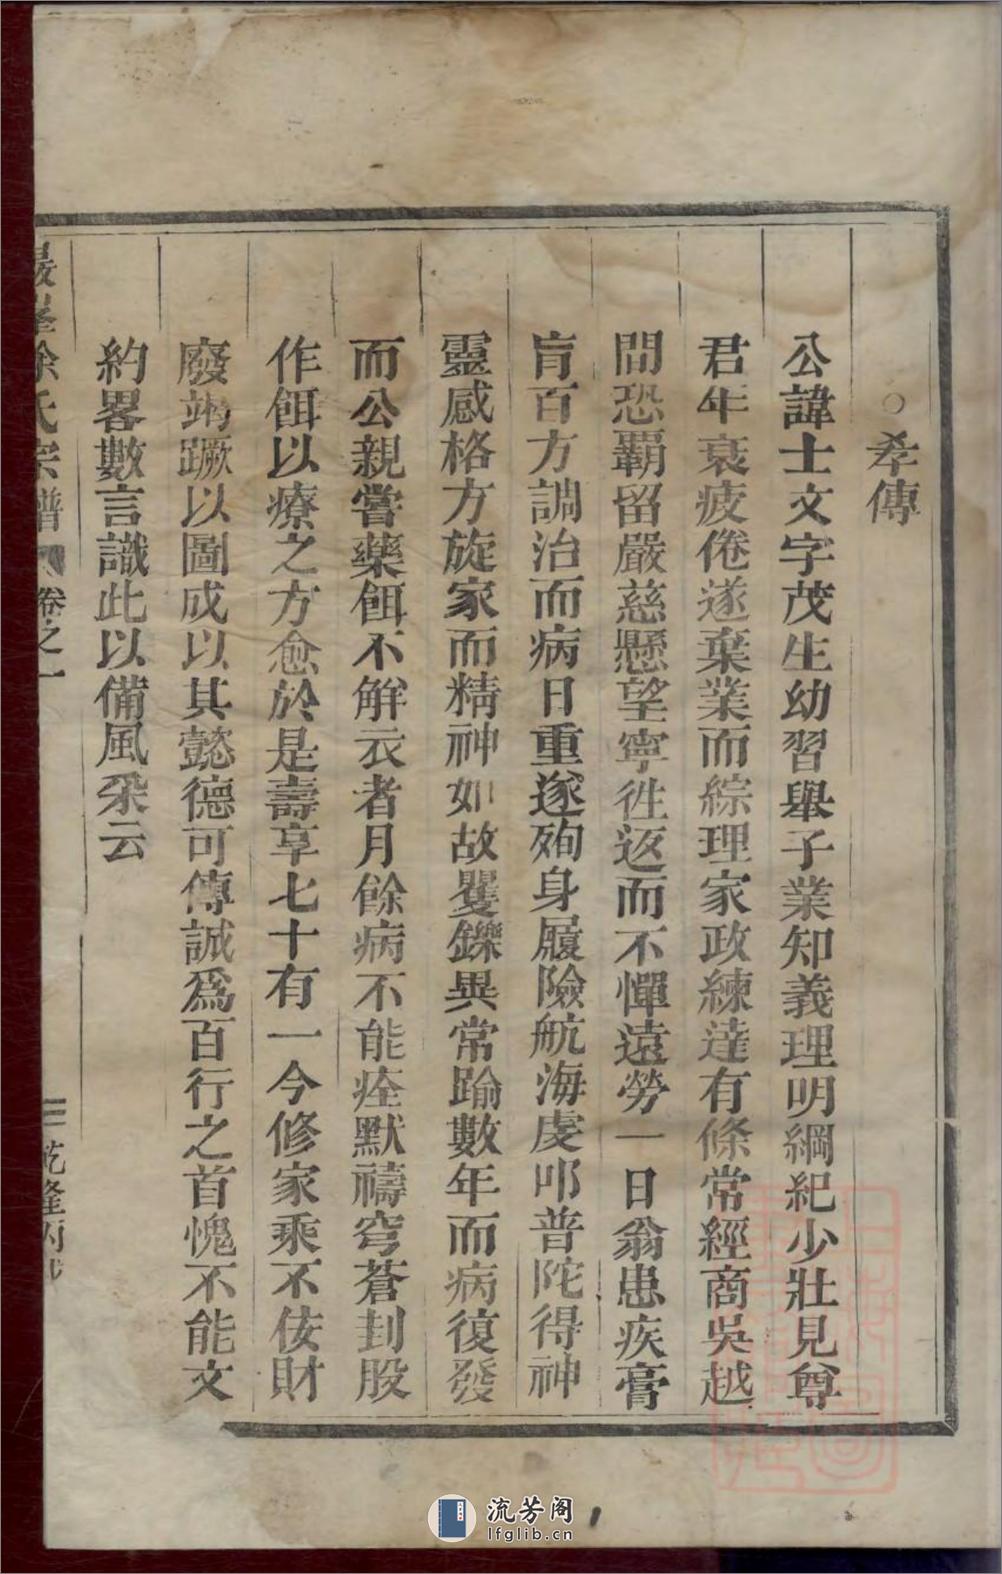 ○孝傳
公諱士文字茂生幼習舉子業知義理明綱紀少壯見尊
君年衰疲倦遂棄業而綜理家政練達有條常經商吳越
間恐覊留嚴慈懸望寧徃返而不憚遠勞一日翁患疾膏
肓百方調治而病日重遂殉身履險航海虔叩普陀得神
靈感格方旋家而精神如故矍鑠異常踰數年而病復發
而公親嘗藥餌不解衣者月餘病不能痊默禱穹蒼封股
作餌以療之方愈於是壽享七十有一今修家乘不侫財
廢竭蹶以圖成以其懿德可傳誠爲百行之首愧不能文
約畧數言識此以備風采云
徐氏宗譜 卷之一 三 乾隆丙戌
流芳阁
lfglib.cn